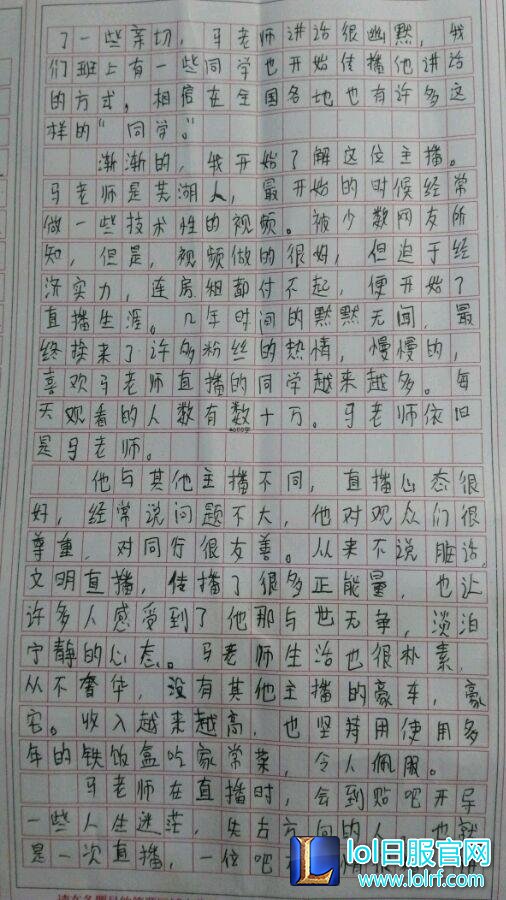 了一些亲切，马老师讲话很幽默，我
们班上有一些同学也开始传播他讲话
的方式。相信在全国各地也有许多这
样的“同学。”
渐渐的，我开始了解这位主播。
马老师是芜湖人，最开始的时候经常
做一些技术性的视频。被少数网友所
知，但是，视频做的很好，但迫于经
济实力，连房租都付不起，便开始了
直播生涯。几年时间的默默无闻，最
终换来了许多粉丝的热情，慢慢的，
喜欢马老师直播的同学越来越多。每
天观看的人数有数十万。马老师依旧
是马老师。
他与其他主播不同，直播心态很
好，经常说问题不大，他对观众们很
尊重，对同行很友善。从来不说脏话，
文明直播，传播了很多正能量，也让
许多人感受到了他那与世无争，淡泊
宁静的心态。马老师生活也很朴素，
从不奢华，没有其他主播的豪车，豪
宅。收入越来越高，也坚持用使用多
年的铁饭盒吃家常菜，令人佩服。
马老师在直播时，会到贴吧开导
一些人生迷茫，失去方向的人，也就
是一次直播，一位吧
lol日服官网
www.lolrf.com